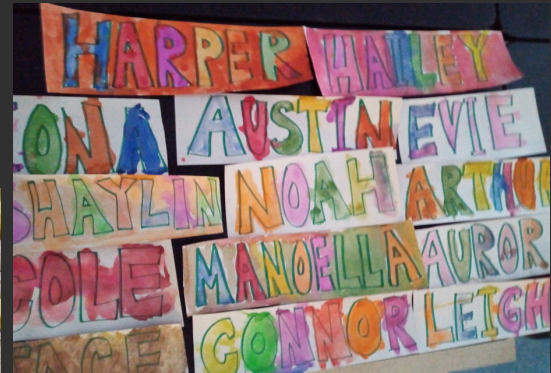 HARPER HAILEY
ONA AUSTIN EVIE
SHAYLIN NOAH ARTHU
COLE MANOELLA AUROR
CONNOR LEIGH
FACE